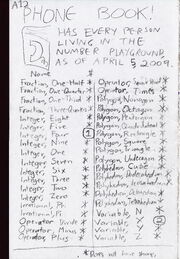 A12
PHONE BOOK!
HAS EVERY PERSON
LIVING IN THE
NUMBER PLAYGROUND,
AS OF APRIL § 2009.
Name #
Fraction, One-Half *
Fraction, One-Quarter *
Fraction, One-Third *
Fraction, Three-Quarters *
Integer, Eight *
Integer, Five *
Integer, Four 1
Integer, Nine *
Integer, One *
Integer, Seven *
Integer, Six *
Integer, Three *
Integer, Two *
Integer, Zero *
Irrational, Pi *
Operator, Divide *
Operator, Minus *
Operator, Plus *
#
Operator, *
Operator, Times *
Polygon, *
Polygon, Octagon *
Polygon, Pentagon *
Polygon, *
Polygon, Rectangle *
Polygon, Square *
Polygon, Triangle *
Polygon, *
Polyhedron, Cube *
Polyhedron, *
Polyhedron, *
Polyhedron, *
Polyhedron, *
Variable, N *
Variable, X
Variable, Y *
Variable, Z *
* Does not have phone.